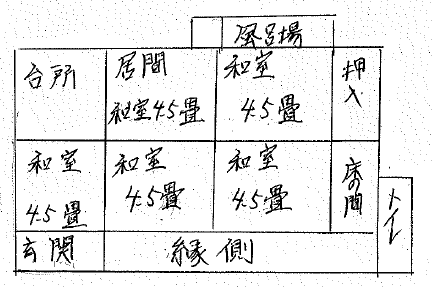 風呂場
台所
居間
和室4.5畳
和室
4.5畳
押入
和室
4.5畳
和室
4.5畳
和室
4.5畳
床の間
トイレ
玄関
縁側